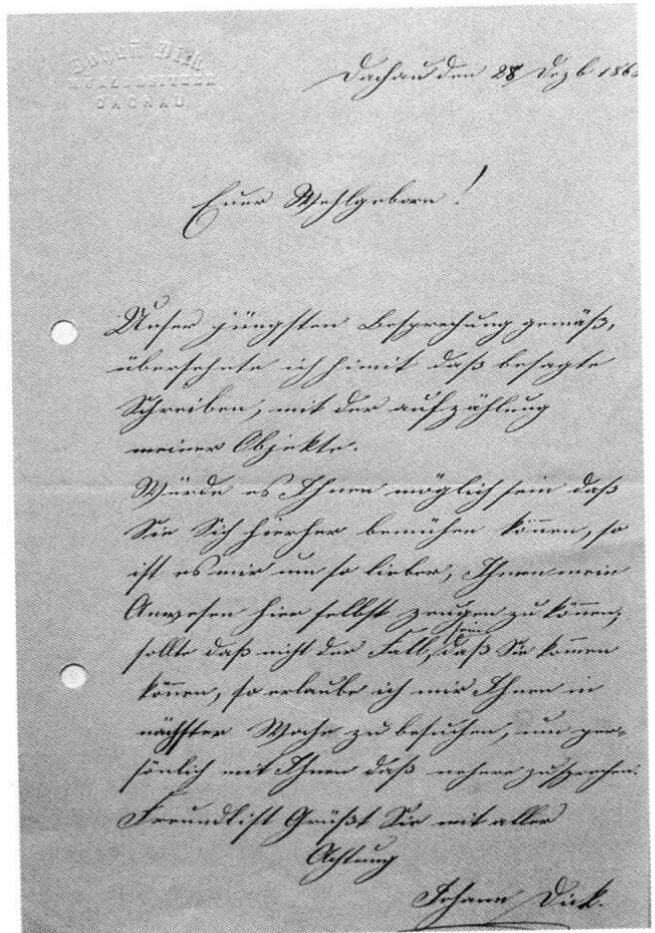 Johann Dick
KUNSTBESITZER
DACHAU
Dachau den 28 Dezb 186
Euer Wohlgeborn!
Unser jüngsten Besprechung gemäß,
übersehnte ich himit daß besagte
Schreiben, mit der aufzählung
meiner Objekte.
Würde es Ihnen möglich sein daß
Sie Sich hierher bemühen können, so
ist es mir um so lieber, Ihnen mein
Anwesen hier selbst zeugen zu können;
sollte daß nicht der Fall sein, daß Sie komen
können, so erlaube ich mir Ihnen in
nächster Woche zu besuchen, um per-
sönlich mit Ihnen daß nehere zusprechen.
Freundlist Grüßt Sie mit aller
Achtung
Johann Dick.